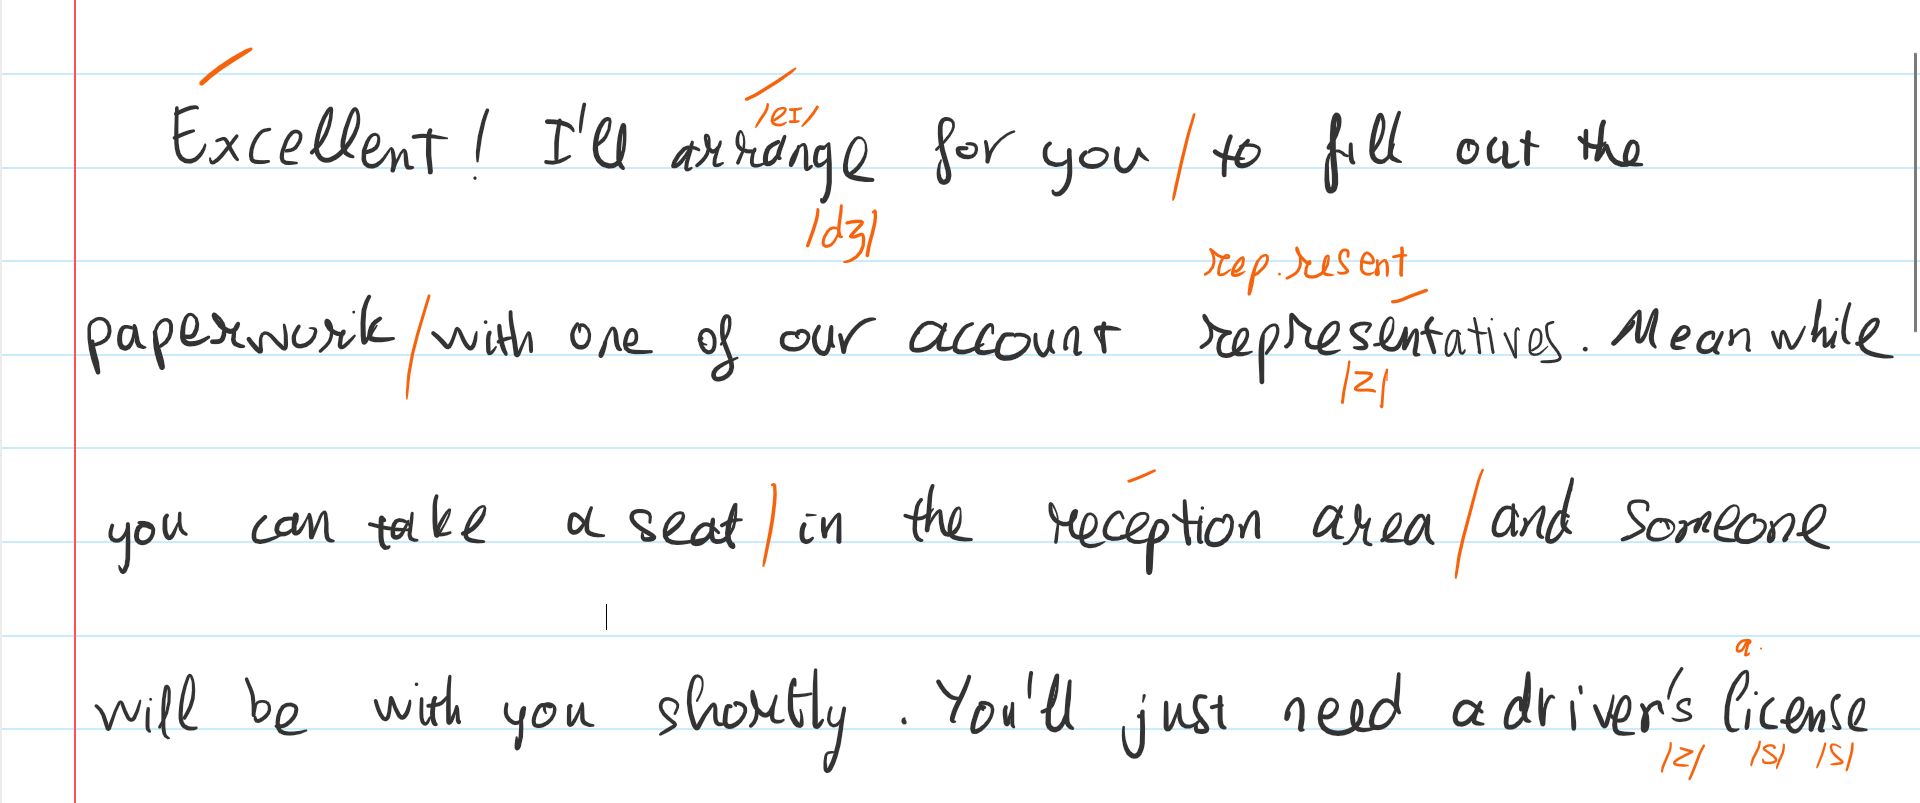 Excellent! I'll arrange for you / to fill out the
/eɪ/
/dʒ/
rep.resent
paperwork / with one of our account representatives. Meanwhile
/z/
you can take a seat / in the reception area / and someone
a.
will be with you shortly. You'll just need a driver's license
/z/ /s/ /s/